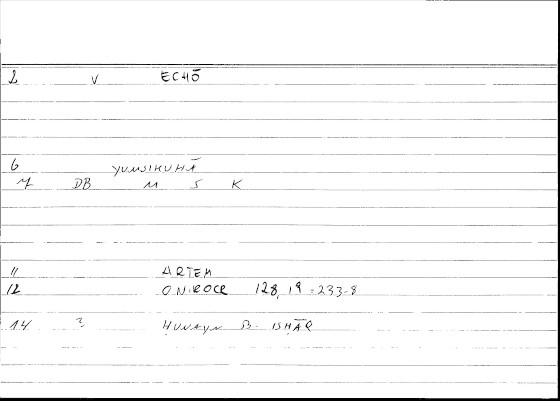 2 V ECHŌ
6 YUMSIKUHĀ
7 DB M S K
11 ARTEM
12 ONIROCR 128, 19 = 233-8
14 ? HUNAYN B. ISHĀQ